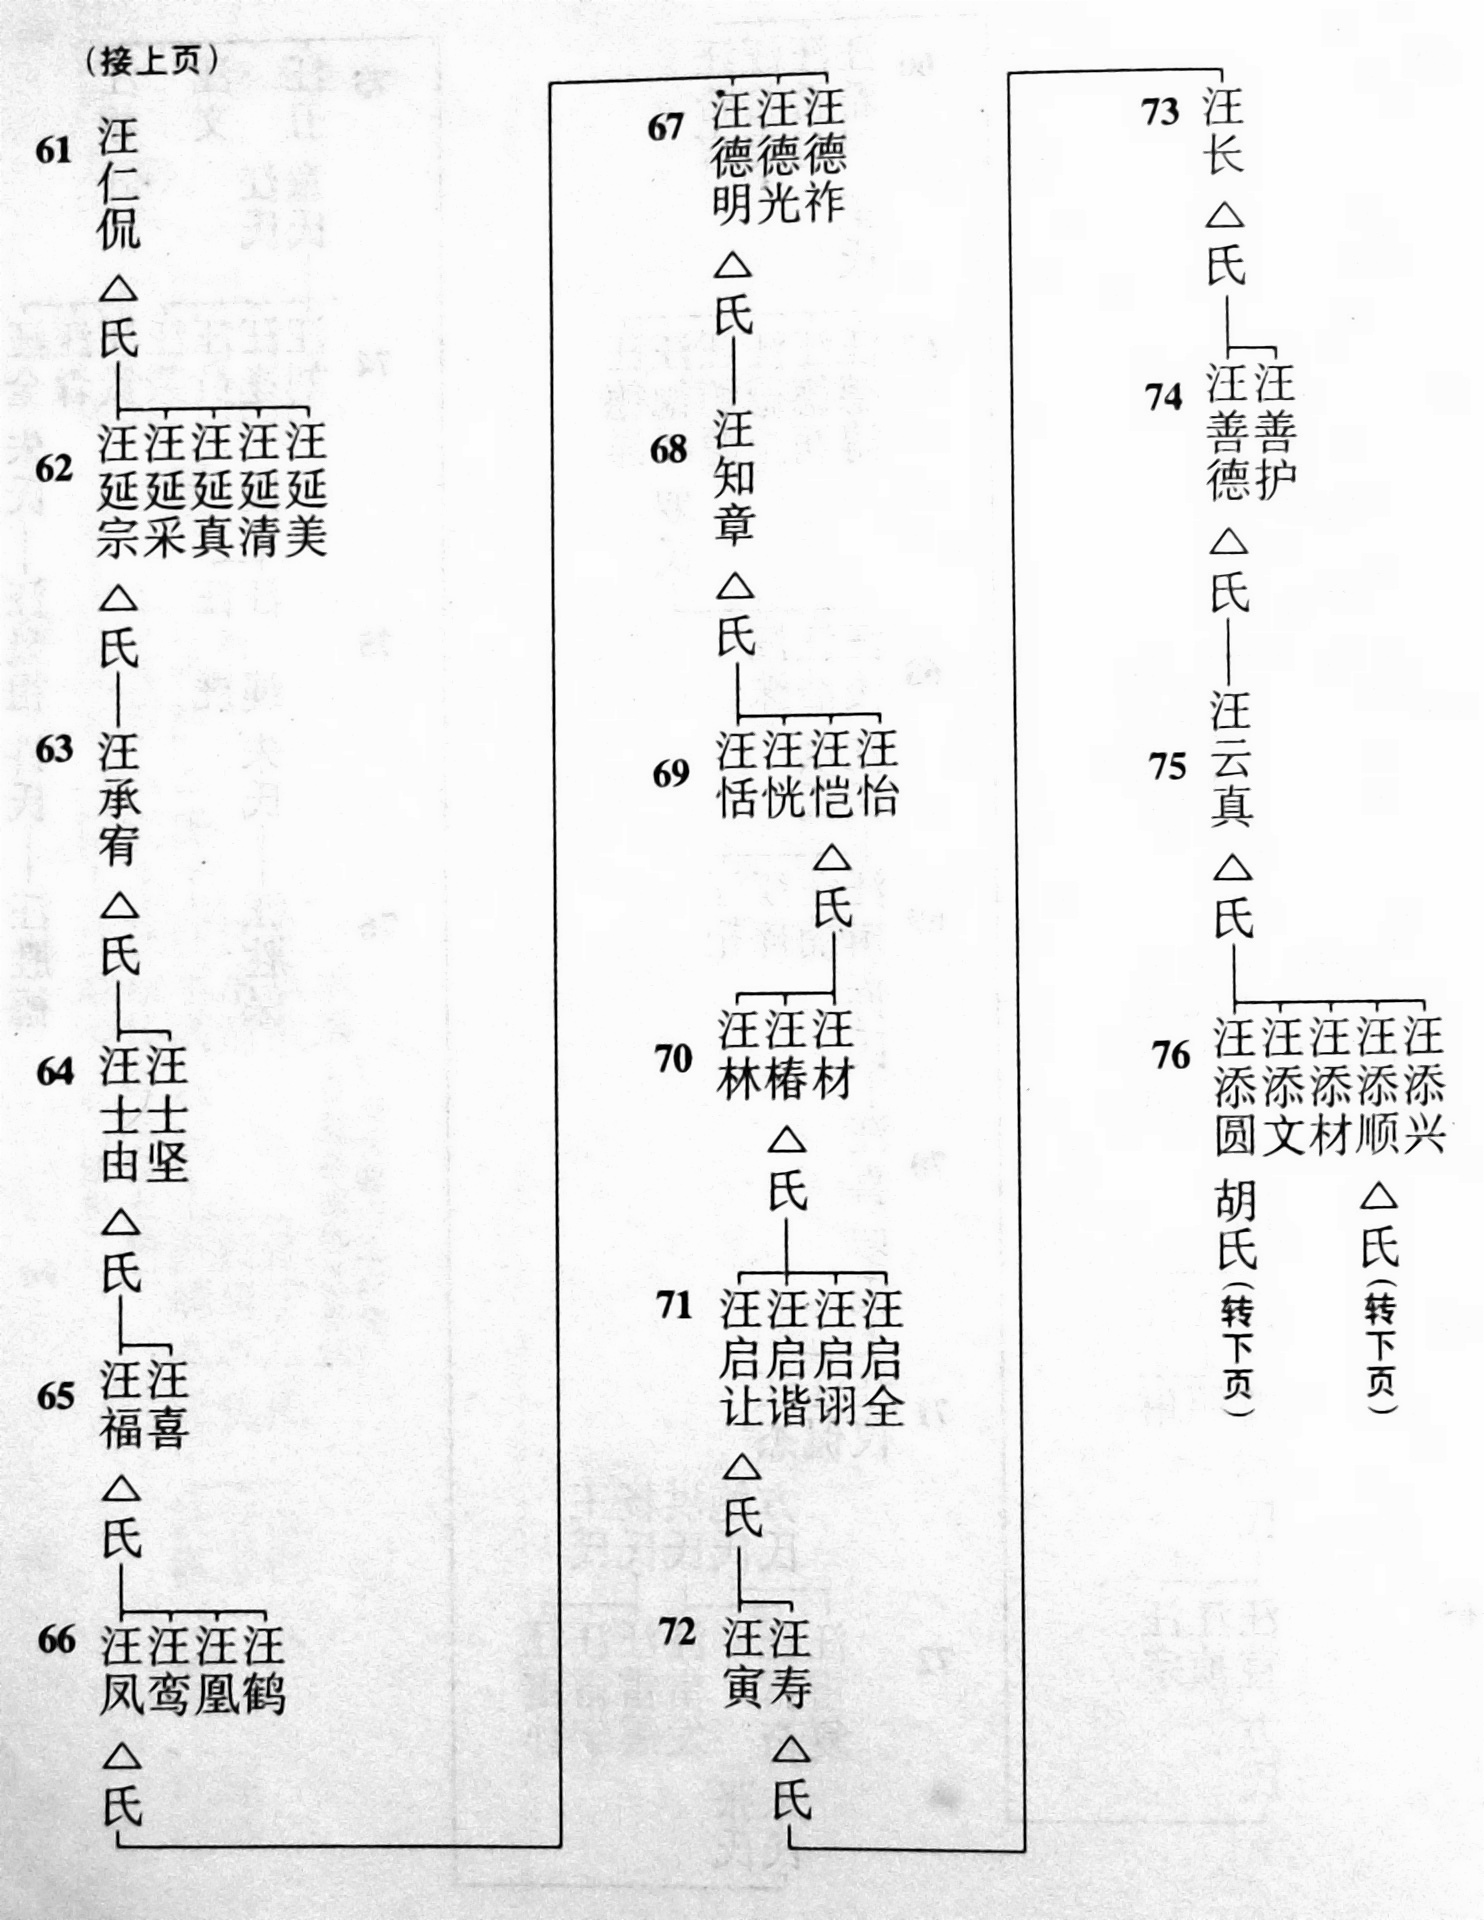 （接上页）
61 汪仁侃
△氏
62 汪延宗 汪延采 汪延真 汪延清 汪延美
△氏
63 汪承宥
△氏
64 汪士由 汪士坚
△氏
65 汪福 汪喜
△氏
66 汪凤 汪鸾 汪凰 汪鹤
△氏
67 汪德明 汪德光 汪德祚
△氏
68 汪知章
△氏
69 汪恬 汪恍 汪恺 汪怡
△氏
70 汪林 汪椿 汪材
△氏
71 汪启让 汪启谐 汪启诩 汪启全
△氏
72 汪寅 汪寿
△氏
73 汪长
△氏
74 汪善德 汪善护
△氏
75 汪云真
△氏
76 汪添圆 汪添文 汪添材 汪添顺 汪添兴
胡氏（转下页） △氏（转下页）